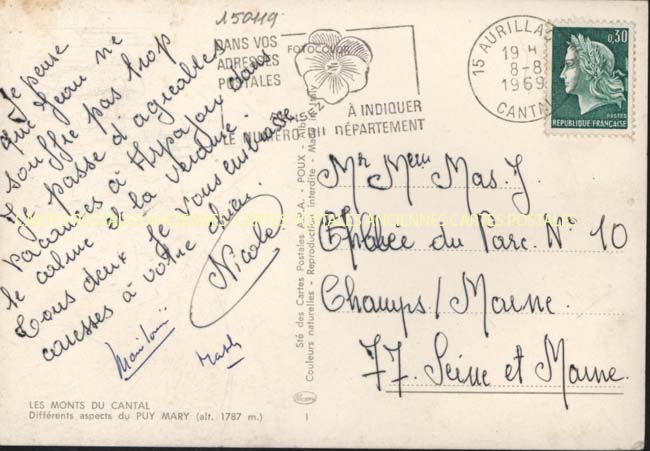 150119
DANS VOS
ADRESSES
POSTALES
FOTOCOLOR
À INDIQUER
LE NUMÉRO DU DÉPARTEMENT
15 AURILLAC
19 H
8-8
1969
CANTAL
0,30
POSTES
REPUBLIQUE FRANÇAISE
Je pense
que Jean ne
souffre pas trop
Je passe d'agréables
vacances à Arpajon dans
le calme de la verdure.
Tous deux je vous embrasse
caresses à votre chien.
Nicole
Sté des Cartes Postales A.P.A. - POUX - Albi
Couleurs naturelles - Reproduction interdite - Made in Italy
Mr Mem Mas. J.
Allée du Parc. N° 10
Champs/Marne
77. Seine et Marne.
LES MONTS DU CANTAL
Différents aspects du PUY MARY (alt. 1787 m.)
1